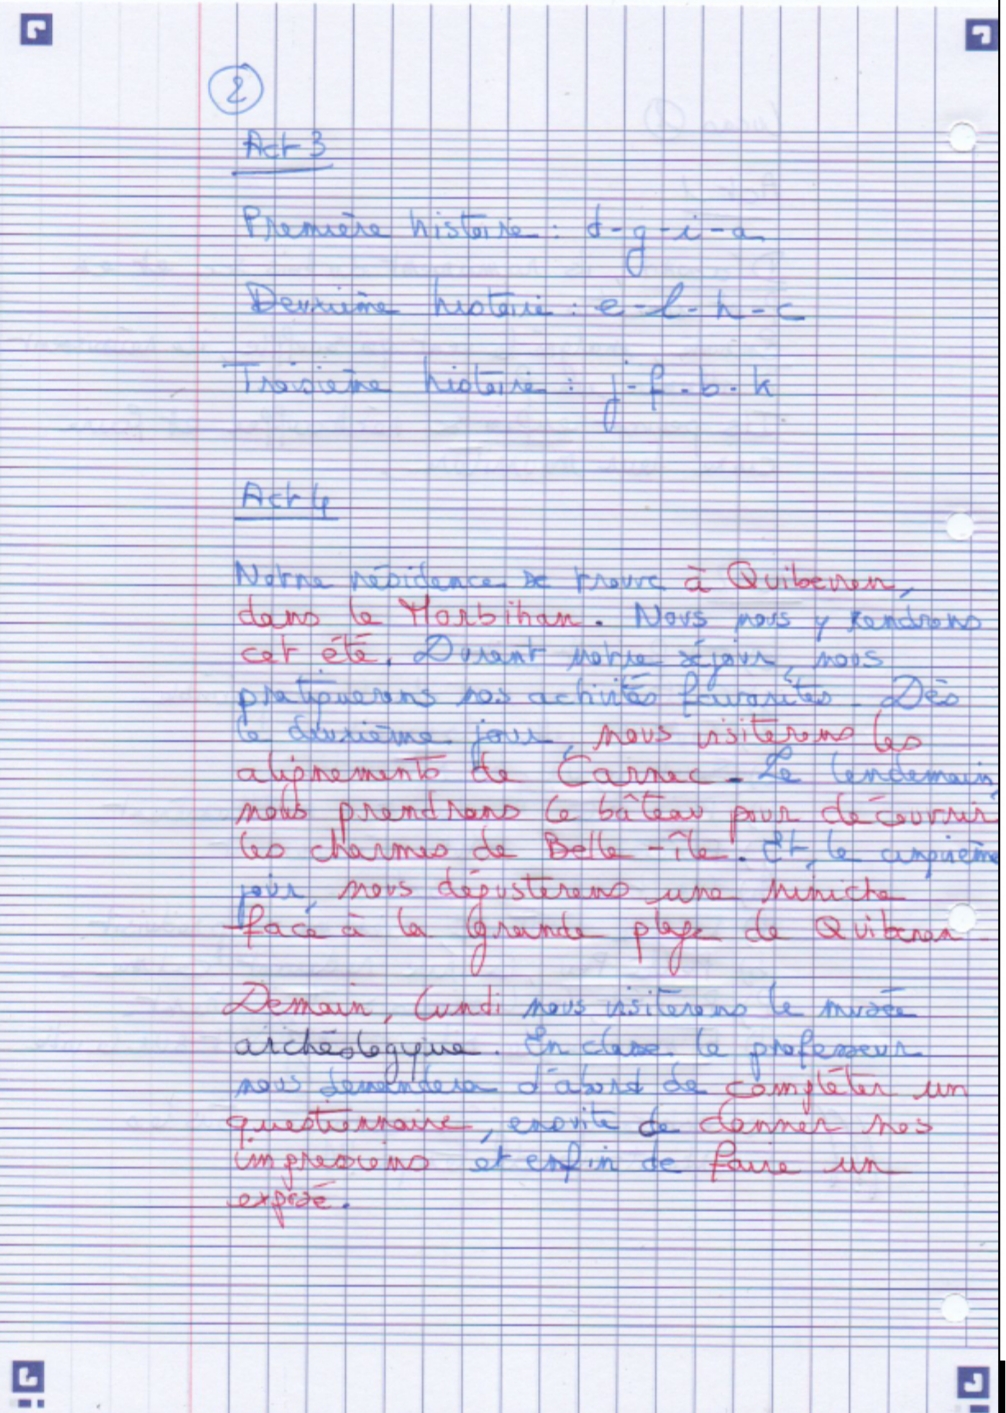 2
Act 3
Première histoire : d-g-i-a
Deuxième histoire : e-l-h-c
Troisième histoire : j-f-b-k
Act 4
Notre résidence se trouve à Quiberon,
dans le Morbihan. Nous nous y rendrons
cet été. Durant notre séjour, nous
pratiquerons nos activités favorites. Dès
le deuxième jour, nous visiterons les
alignements de Carnac. Le lendemain,
nous prendrons le bâteau pour découvrir
les charmes de Belle-île. Et, le cinquième
jour, nous dégusterons une niniche
face à la Grande plage de Quiberon
Demain, lundi nous visiterons le musée
archéologique. En classe, le professeur
nous demandera d'abord de compléter un
questionnaire, ensuite de donner nos
impressions et enfin de faire un
exposé.